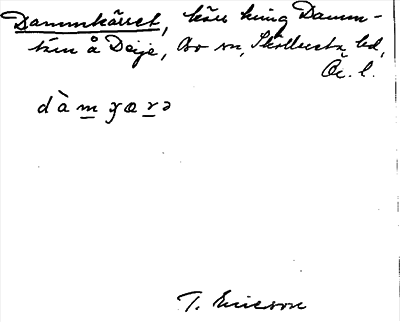 Dammkärret, kärr kring Damm-
täm å Deije, Bo sn, Skollersta hd,
Ör. l.
dàmɣæra
T. Ericson